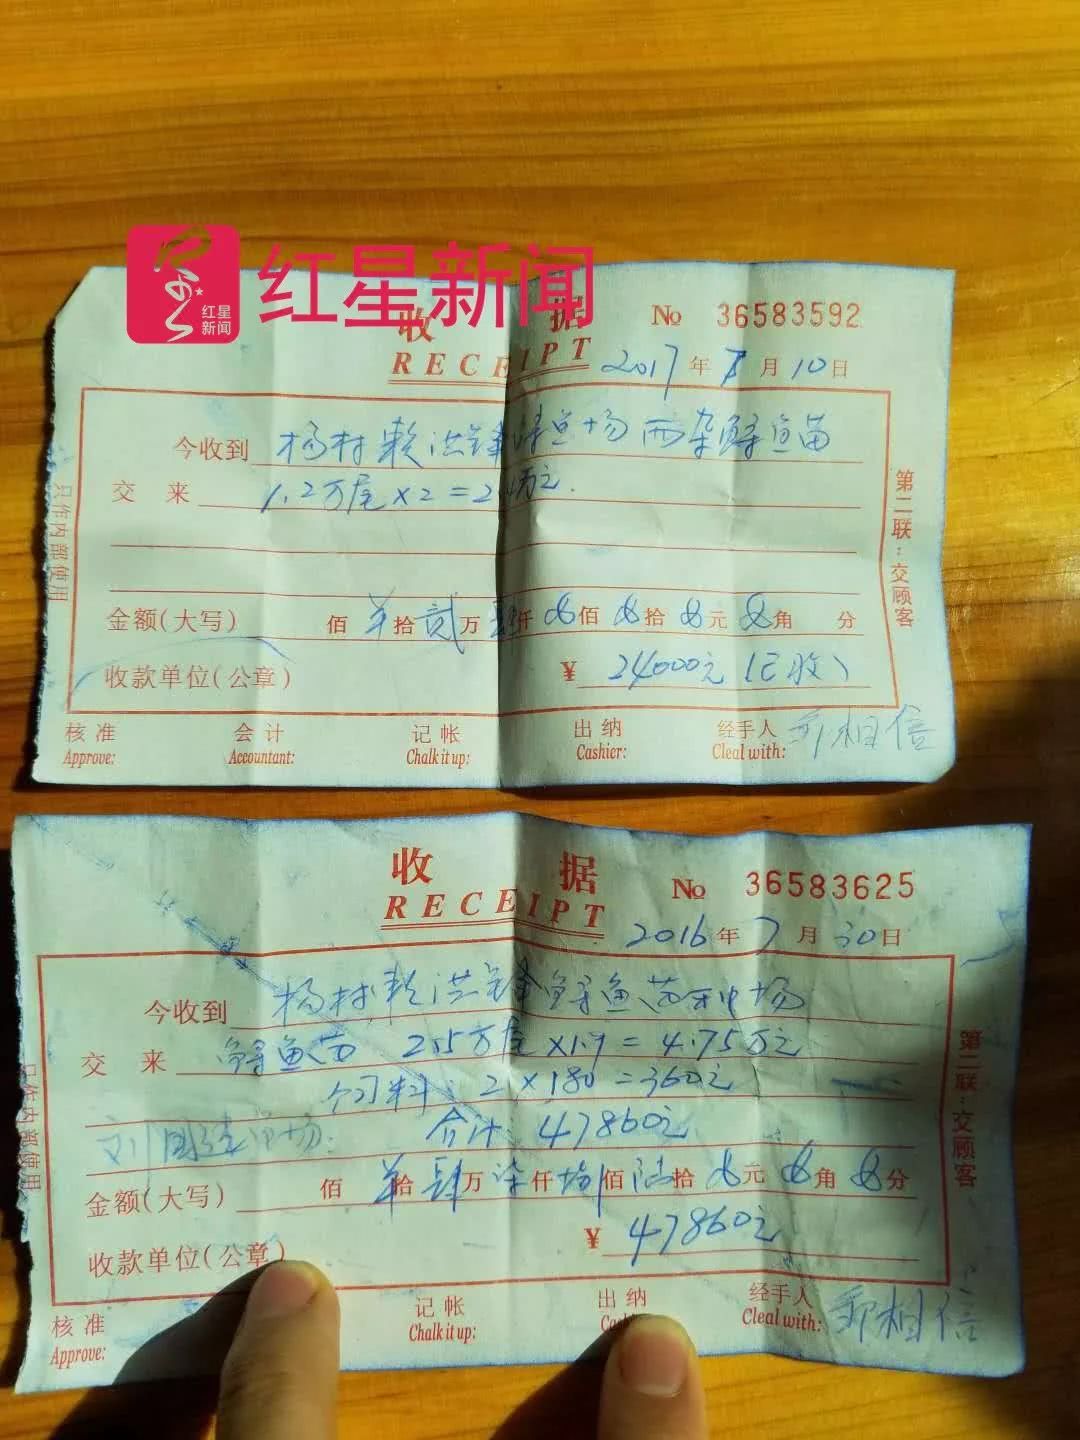 红星新闻
红星
新闻
收 据
RECEIPT
№ 36583592
2017年 月10日
今收到 杨村赖洪锋鲟鱼场西杂鲟鱼苗
交 来 1.2万尾×2=2.4万元.
金额(大写) 佰 拾贰万肆仟 佰 拾 元 角 分
收款单位(公章)
¥ 24000元(已收)
核准 会计 记帐 出纳 经手人
Approve: Accountant: Chalk it up: Cashier: Cleal with: 相信
只作内部使用
第二联:交顾客
收 据
RECEIPT
№ 36583625
2016年7月30日
今收到 杨村赖洪锋鲟鱼苗种场
交 来 鲟鱼苗 2.5万尾×1.9=4.75万元
饲料: 2×180=360元
刘 场. 合计: 47860元
金额(大写) 佰 拾肆万柒仟捌佰陆拾 元 角 分
收款单位(公章)
¥ 47860元
核准 记帐 出纳 经手人
Approve: Chalk it up: Cleal with: 相信
只作内部使用
第二联:交顾客